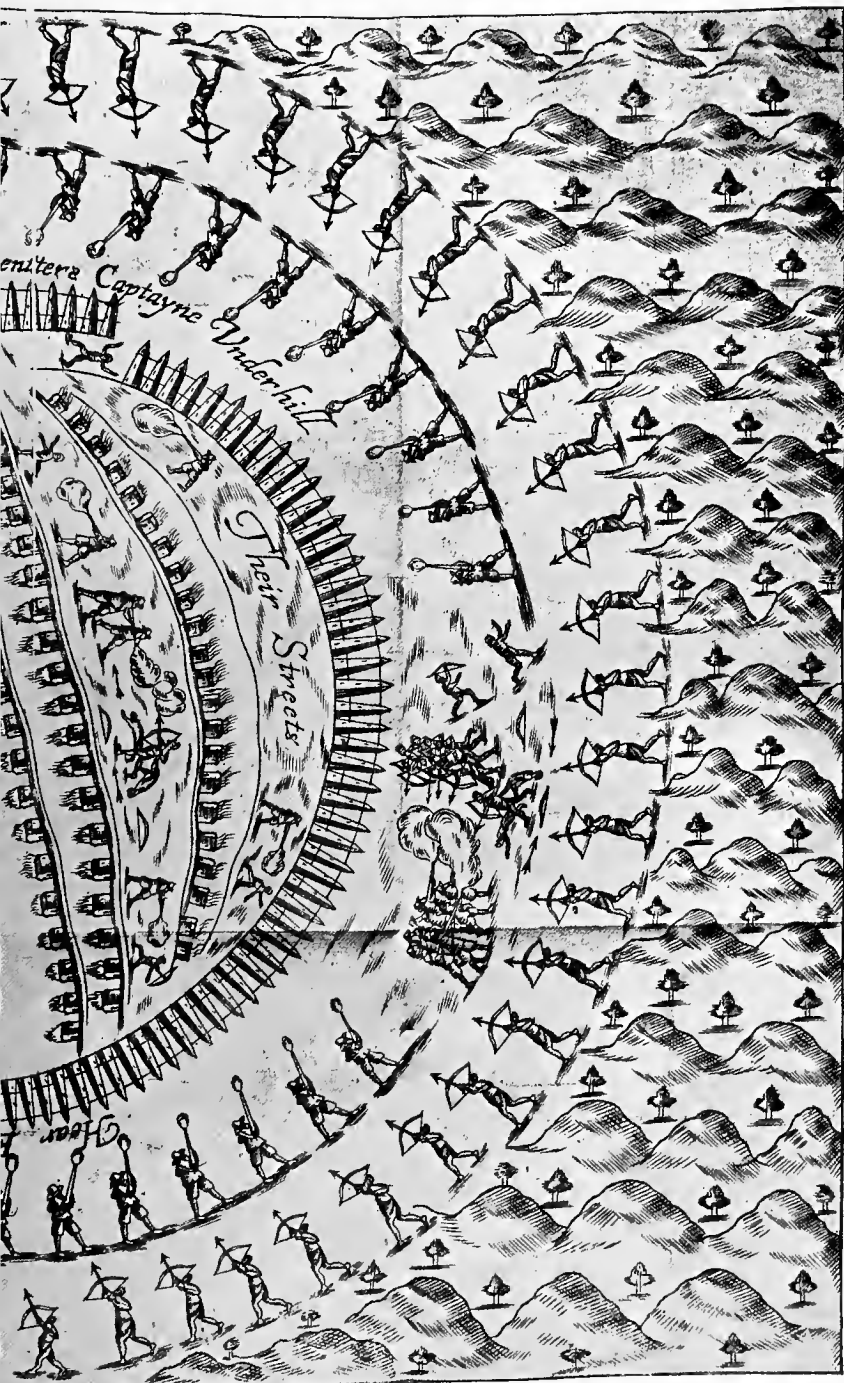 Captayne Underhill
Their Streets
Hear